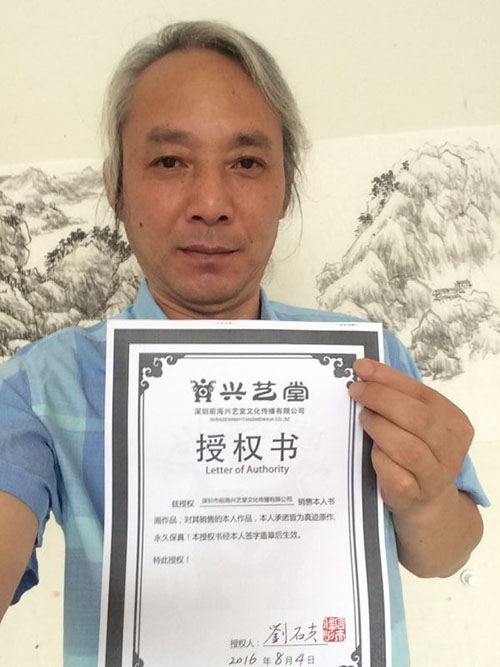 兴艺堂
深圳前海兴艺堂文化传播有限公司
授权书
Letter of Authority
兹授权 深圳市前海兴艺堂文化传播有限公司 销售本人书
画作品，对其销售的本人作品，本人承诺皆为真迹原作，
永久保真！本授权书经本人签字盖章后生效。
特此授权！
授权人：劉石
2016 年 8 月 4 日